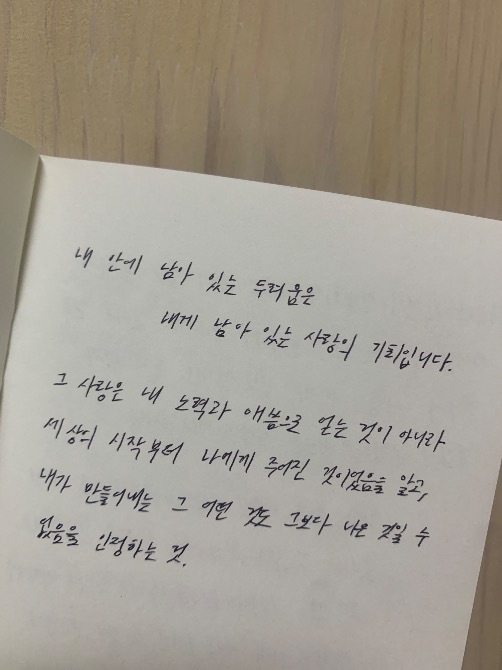 내 안에 남아 있는 두려움은
내게 남아 있는 사랑의 기회입니다.
그 사랑은 내 노력과 애씀으로 얻는 것이 아니라
세상의 시작부터 나에게 주어진 것이었음을 알고,
내가 만들어내는 그 어떤 것도 그보다 나은 것일 수
없음을 인정하는 것.